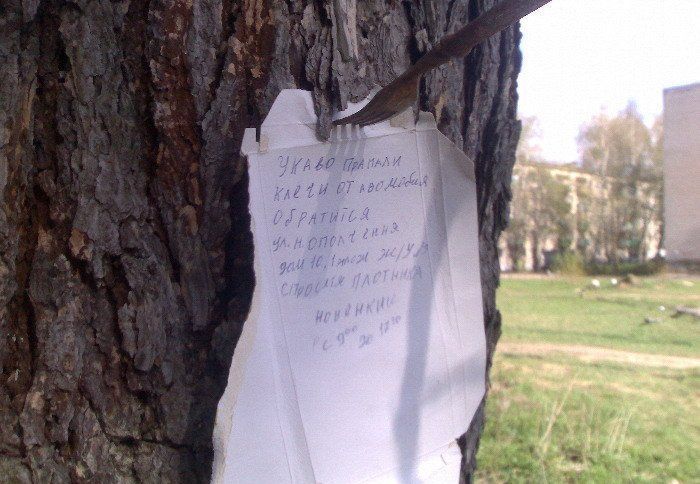 УКАВО ПРАПАЛИ
КЛЕЧИ ОТ АВОМОБИЯ
ОБРАТИТСЯ
УЛ. Н. ОПОЛЧЕНИЯ
ДОМ 10, 1 ЭТАЖ
СПРОСИТЬ ПЛОТНИКА
с 9⁰⁰ до